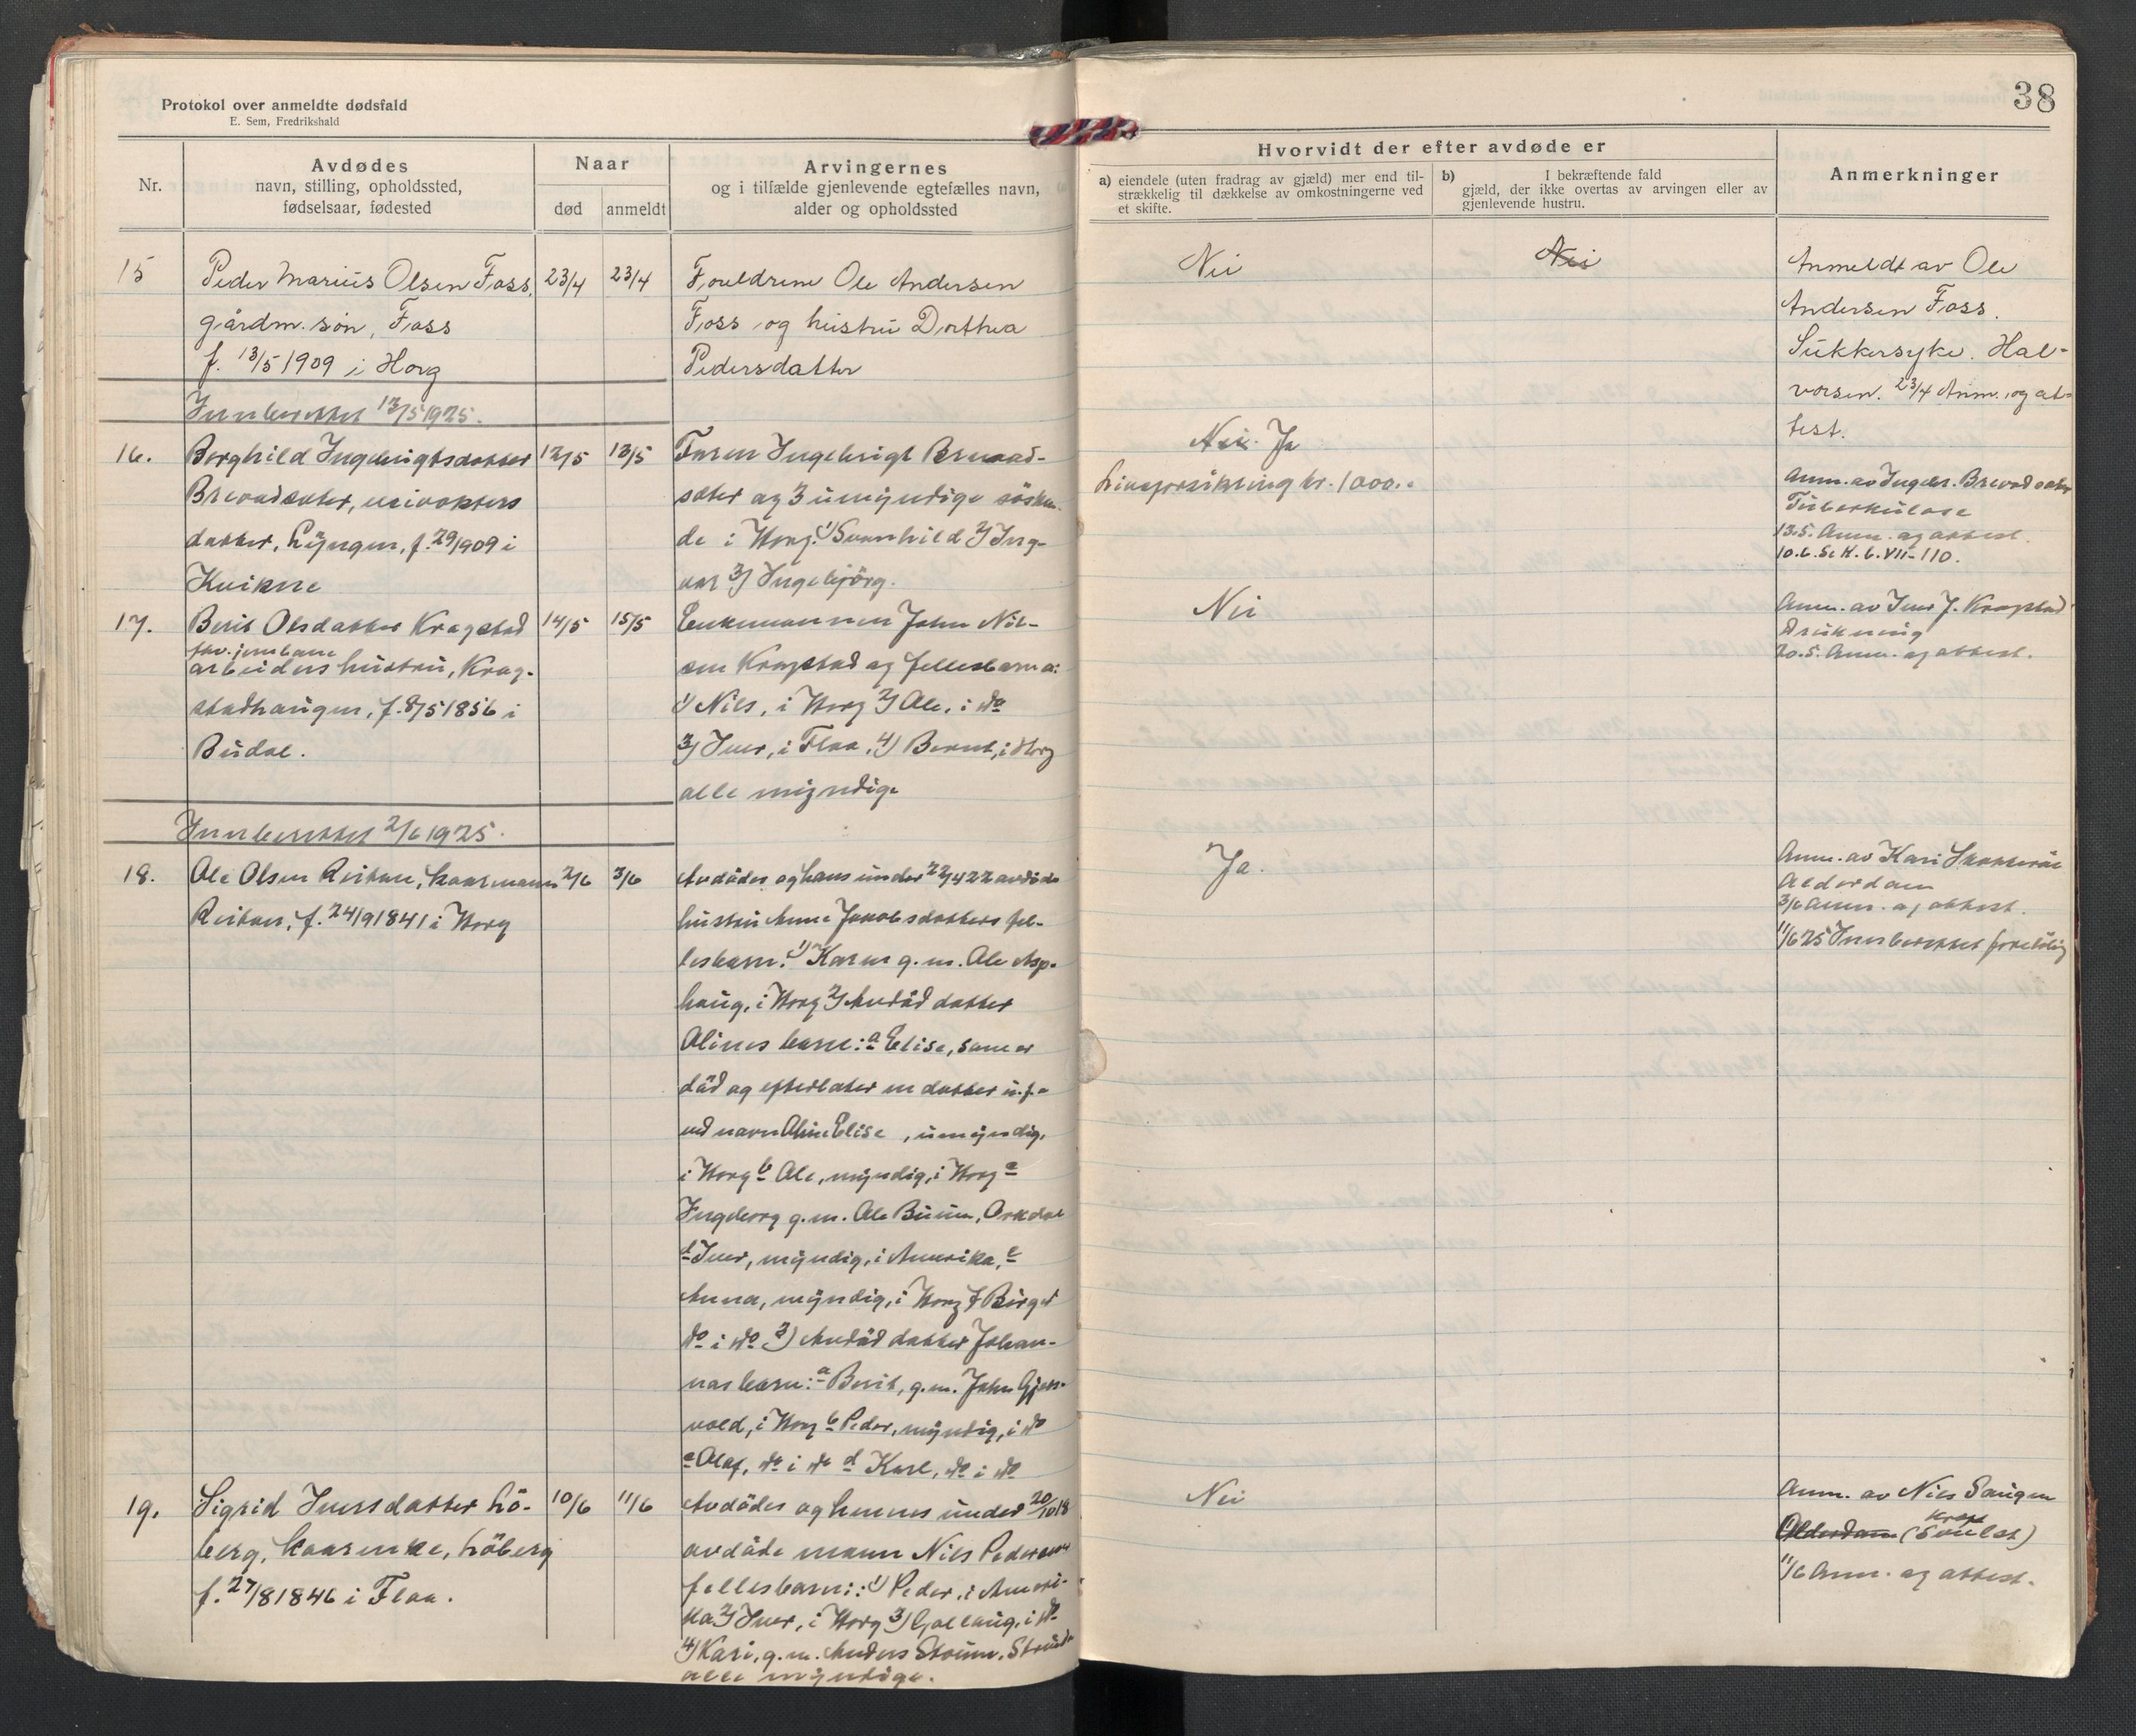 Protokol over anmeldte dødsfald
E. Sem, Fredrikshald
38
Nr.
Avdødes
navn, stilling, opholdssted,
fødselsaar, fødested
Naar
død
anmeldt
Arvingernes
og i tilfælde gjenlevende egtefælles navn,
alder og opholdssted
Hvorvidt der efter avdøde er
a) eiendele (uten fradrag av gjæld) mer end til-
strækkelig til dækkelse av omkostningerne ved
et skifte.
b) I bekræftende fald
gjæld, der ikke overtas av arvingen eller av
gjenlevende hustru.
Anmerkninger
15
Peder Marius Olsen Foss,
gårdm. søn, Foss
f. 13/5 1909 i Horg
23/4
23/4
Foreldrene Ole Andersen
Foss og hustru Dorthea
Pedersdatter
Nei
Nei
Anmeldt av Ole
Andersen Foss.
Sukkersyke. Hal-
vorsen. 23/4 Anm. og at-
test.
Innberettet 12/5 1925.
16.
Borghild Ingebrigtsdatter
datter, Lyngen, f. 29/1909 i
Kvikne
12/5
13/5
Faren Ingebrigt Brevad-
sæter og 3 umyndige søsken-
de i Horg: 1) Svanhild 2) Ing-
var 3) Ingebjörg.
Nei. Ja
Livsforsikring kr. 1000.-
Anm. av Ingebr. Brevadsæter
Tuberkulose
13.5. Anm. og attest.
10.6. Se H. b. VII - 110.
17.
Berit Olsdatter Kragstad
fhv. jernbane
arbeiders hustru, Krag-
stadhaugen, f. 8/5 1856 i
Budal.
14/5
15/5
Enkemannen John Nil-
sen Kragstad og fellesbarna:
1) Nils, i Horg 2) Ole, i do
3) Iver, i Flaa, 4) Bernt, i Horg
alle myndige
Nei
Anm. av Iver J. Kragstad
Drukning
20.5. Anm. og attest.
Innberettet 2/6 1925.
18.
Ole Olsen Reitan, kaarmann
Reitan, f. 24/9 1841 i Horg
2/6
3/6
Avdødes og hans under 22/4 22 avdøde
hustru Anne Jakobsdatters fel-
lesbarn: 1) Karen g. m. Ole Asp-
haug, i Horg 2) Avdød datter
Olines barn: a Elise, som er
død og efterlater en datter u. f.
ved navn Oline Elise, umyndig,
i Horg b Ole, myndig, i Horg c
Ingeborg g. m. Ole Buum, Orkdal
d Iver, myndig, i Amerika, e
Anna, myndig, i Horg f Birger
do i do 3) Avdød datter Johan-
nas barn: a Berit, g. m. John Gjers-
vold, i Horg b Peder, myndig, i do
c Olaf, do i do d Karl, do i do
Ja.
Anm. av Kari
Alderdom
3/6 Anm. og attest.
11/6 25 Innberettet foreløbig
19.
Sigrid Iversdatter Lö-
berg, kaarenke, Löberg
f. 27/8 1846 i Flaa.
10/6
11/6
Avdødes og hennes under 20/10 18
avdøde mann Nils Pedersens
fellesbarn: 1) Peder, i Ameri-
ka 2) Iver, i Horg 3) Gollaug, i do
4) Kari, g. m. Anders Støren, Støren
alle myndige.
Nei
Anm. av Nils Haugen
Kreft
Alderdom (Soulat)
11/6 Anm. og attest.